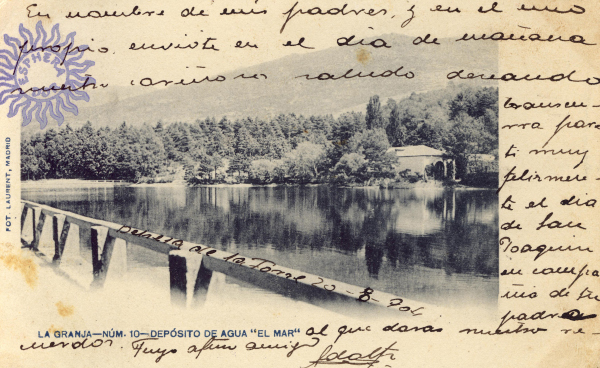 En nombre de mis padres, y en el mio
propio enviote en el día de mañana
nuestro cariñoso saludo deseando
transcu-
rra para
ti muy
felizmen-
te el día
de San
Joaquin
en compa
ñia de tu
padre
al que daras nuestro re-
cuerdos. Tuyo afmo amigo
Adolfo
de la Torre 20-8-904
ESTHER
FOT. LAURENT, MADRID
LA GRANJA—NÚM. 10—DEPÓSITO DE AGUA "EL MAR"